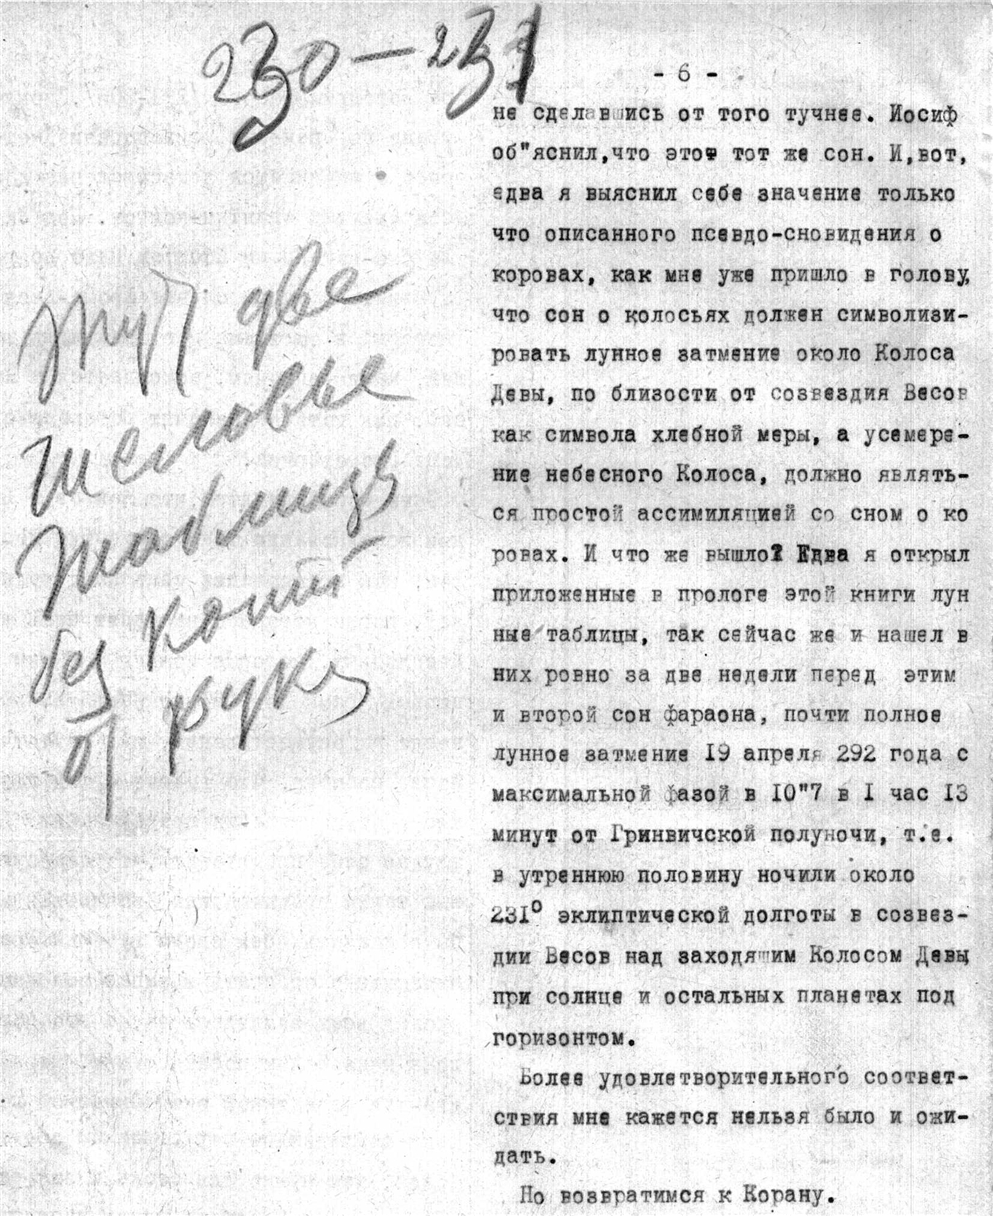 230-231
- 6 -
не сделавшись от того тучнее. Иосиф
об"яснил,что это тот же сон. И,вот,
едва я выяснил себе значение только
что описанного псевдо-сновидения о
коровах, как мне уже пришло в голову,
что сон о колосьях должен символизи-
ровать лунное затмение около Колоса
Девы, по близости от созвездия Весов
как символа хлебной меры, а усемере-
ние небесного Колоса, должно являть-
ся простой ассимиляцией со сном о ко
ровах. И что же вышло? Едва я открыл
приложенные в прологе этой книги лун
ные таблицы, так сейчас же и нашел в
них ровно за две недели перед этим
и второй сон фараона, почти полное
лунное затмение 19 апреля 292 года с
максимальной фазой в 10"7 в I час 13
минут от Гринвичской полуночи, т.е.
в утреннюю половину ночили около
231° эклиптической долготы в созвез-
дии Весов над заходящим Колосом Девы
при солнце и остальных планетах под
горизонтом.
Более удовлетворительного соответ-
ствия мне кажется нельзя было и ожи-
дать.
Но возвратимся к Корану.
Тут две
таблицы
без